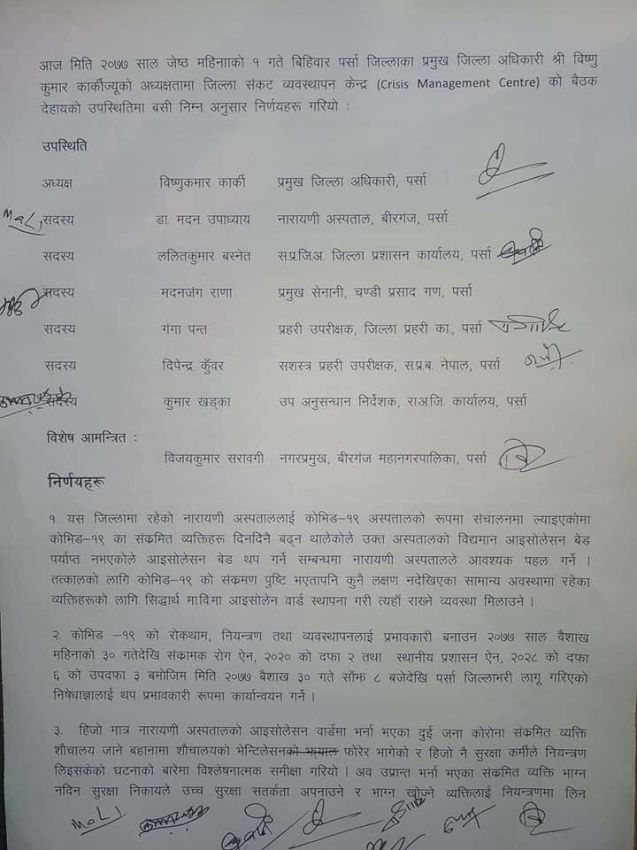 आज मिति २०७७ साल जेष्ठ महिनााको १ गते बिहिवार पर्सा जिल्लाका प्रमुख जिल्ला अधिकारी श्री विष्णु
कुमार कार्कीज्यूको अध्यक्षतामा जिल्ला संकट व्यवस्थापन केन्द्र (Crisis Management Centre) को बैठक
देहायको उपस्थितिमा बसी निम्न अनुसार निर्णयहरू गरियो :
उपस्थिति
अध्यक्ष विष्णुकमार कार्की प्रमुख जिल्ला अधिकारी, पर्सा
सदस्य डा. मदन उपाध्याय नारायणी अस्पताल, बीरगंज, पर्सा
सदस्य ललितकुमार बस्नेत स.प्र.जि.अ. जिल्ला प्रशासन कार्यालय, पर्सा
सदस्य मदनजंग राणा प्रमुख सेनानी, चण्डी प्रसाद गण, पर्सा
सदस्य गंगा पन्त प्रहरी उपरीक्षक, जिल्ला प्रहरी का., पर्सा
सदस्य दिपेन्द्र कुँवर सशस्त्र प्रहरी उपरीक्षक, स.प्र.ब. नेपाल, पर्सा
सदस्य कुमार खड्का उप अनुसन्धान निर्देशक, रा.अ.जि. कार्यालय, पर्सा
विशेष आमन्त्रित :
विजयकुमार सरावगी नगरप्रमुख, बीरगंज महानगरपालिका, पर्सा
निर्णयहरू
१. यस जिल्लामा रहेको नारायणी अस्पताललाई कोभिड-१९ अस्पतालको रूपमा संचालनमा ल्याइएकोमा
कोभिड-१९ का संक्रमित व्यक्तिहरू दिनदिनै बढ्न थालेकोले उक्त अस्पतालको विद्यमान आइसोलेसन बेड
पर्याप्त नभएकोले आइसोलेसन बेड थप गर्ने सम्बन्धमा नारायणी अस्पतालले आवश्यक पहल गर्ने ।
तत्कालको लागि कोभिड-१९ को संक्रमण पुष्टि भएतापनि कुनै लक्षण नदेखिएका सामान्य अवस्थामा रहेका
व्यक्तिहरूको लागि सिद्धार्थ मा.वि.मा आइसोलेन वार्ड स्थापना गरी त्यहाँ राख्ने व्यवस्था मिलाउने ।
२. कोभिड -१९ को रोकथाम, नियन्त्रण तथा व्यवस्थापनलाई प्रभावकारी बनाउन २०७७ साल बैशाख
महिनाको ३० गतेदेखि संक्रामक रोग ऐन, २०२० को दफा २ तथा स्थानीय प्रशासन ऐन, २०२८ को दफा
६ को उपदफा ३ बमोजिम मिति २०७७ बैशाख ३० गते साँझ ८ बजेदेखि पर्सा जिल्लाभरी लागू गरिएको
निषेधाज्ञालाई थप प्रभावकारी रूपमा कार्यान्वयन गर्ने ।
३. हिजो मात्र नारायणी अस्पतालको आइसोलेसन वार्डमा भर्ना भएका दुई जना कोरोना संक्रमित व्यक्ति
शौचालय जाने बहानामा शौचालयको भेन्टिलेसनको झ्याल फोरेर भागेको र हिजो नै सुरक्षा कर्मीले नियन्त्रण
लिइसकेको घटनाको बारेमा विश्लेषनात्मक समीक्षा गरियो । अव उप्रान्त भर्ना भएका संक्रमित व्यक्ति भाग्न
नदिन सुरक्षा निकायले उच्च सुरक्षा सतर्कता अपनाउने र भाग्न खोज्ने व्यक्तिलाई नियन्त्रणमा लिन